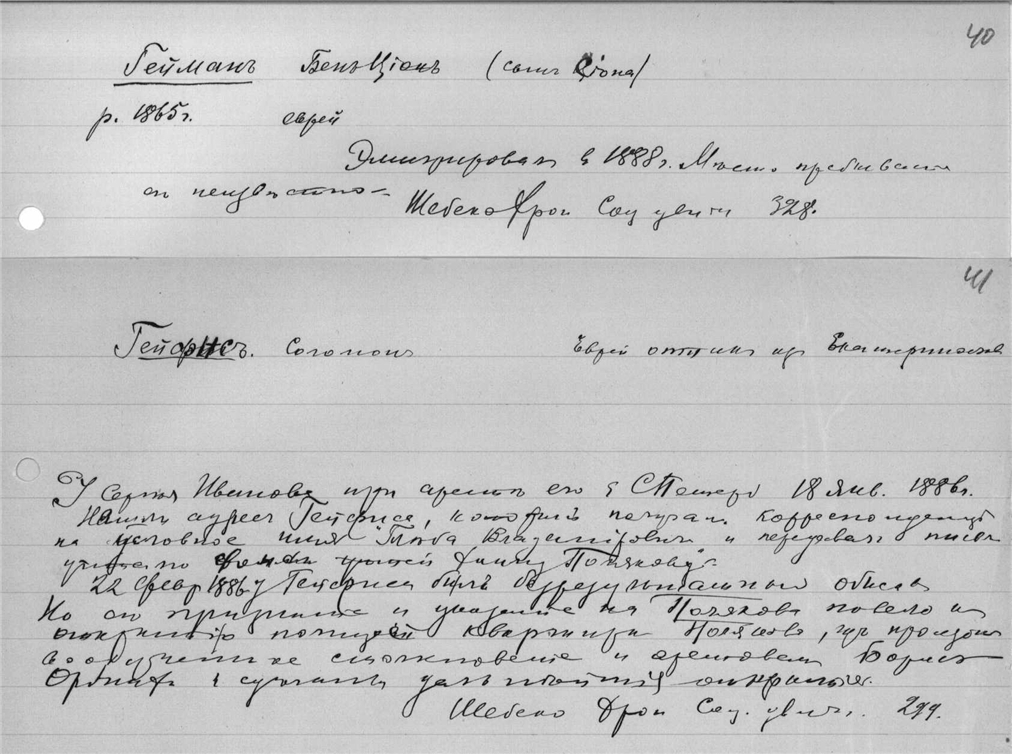 40
Гейманъ Бенъ Ціонъ (сынъ Ціона)
р. 1865 г. еврей
Эмигрировалъ в 1888 г. Место пребывания
его неизвестно –
Шебеко Хрон Соц движ 328.
41
Гейфисъ. Соломон Еврей оптик из Екатеринослава
У Сергея Иванова при аресте его в СПетерб 18 янв. 1886 г.
Нашли адрес Гейфиса, который получал корреспонденцию
на условное имя Глеба Владимировича и передавал письма
Полякову".
22 февр 1886 у Гейфиса был безрезультатный обыск
Но он признание и указание на Полякова повело к
открытию полицией квартиры Полякова, где произошло
вооруженное столкновение и арестован Борис
Оржих и сделаны дальнейшия открытия.
Шебеко Хрон Соц. движ. 299.